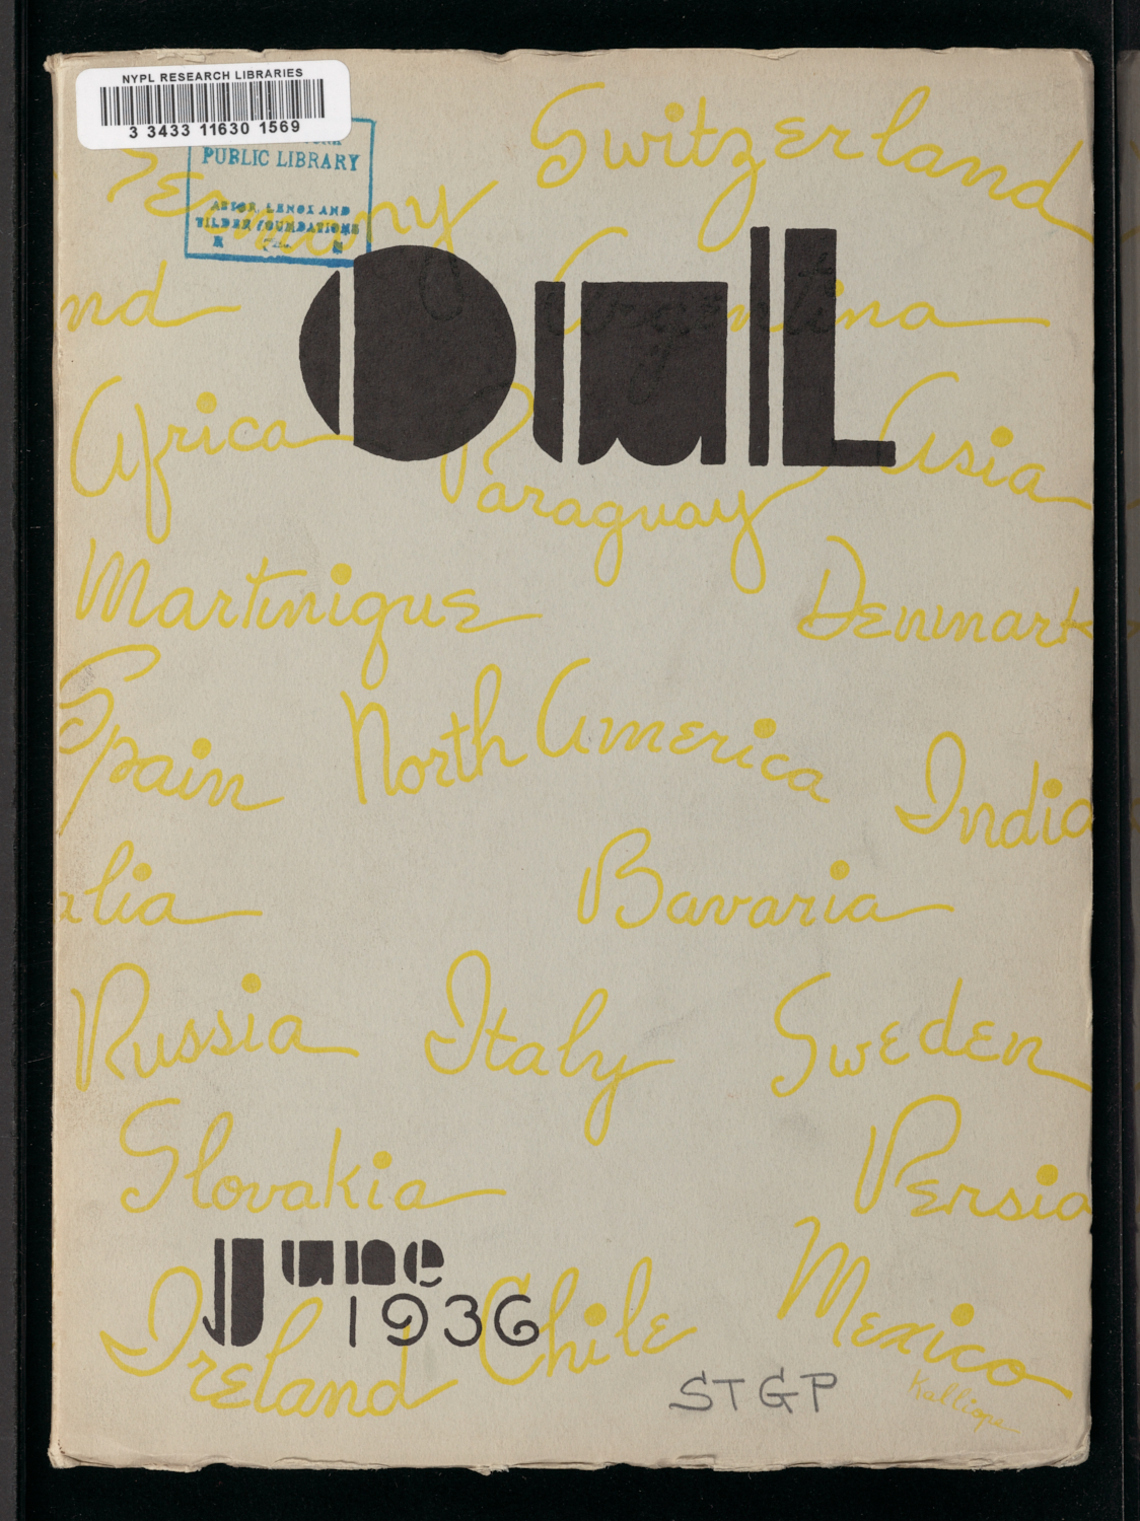 NYPL RESEARCH LIBRARIES
3 3433 11630 1569
PUBLIC LIBRARY
ASTOR, LENOX AND
TILDEN FOUNDATIONS
Switzerland
Germany
OWL
nd
Argentina
Africa
Paraguay
Asia
Martinique
Denmark
Spain
North America
India
alia
Bavaria
Russia
Italy
Sweden
Slovakia
Persia
June
1936
Ireland
Chile
Mexico
STGP
Kalliope